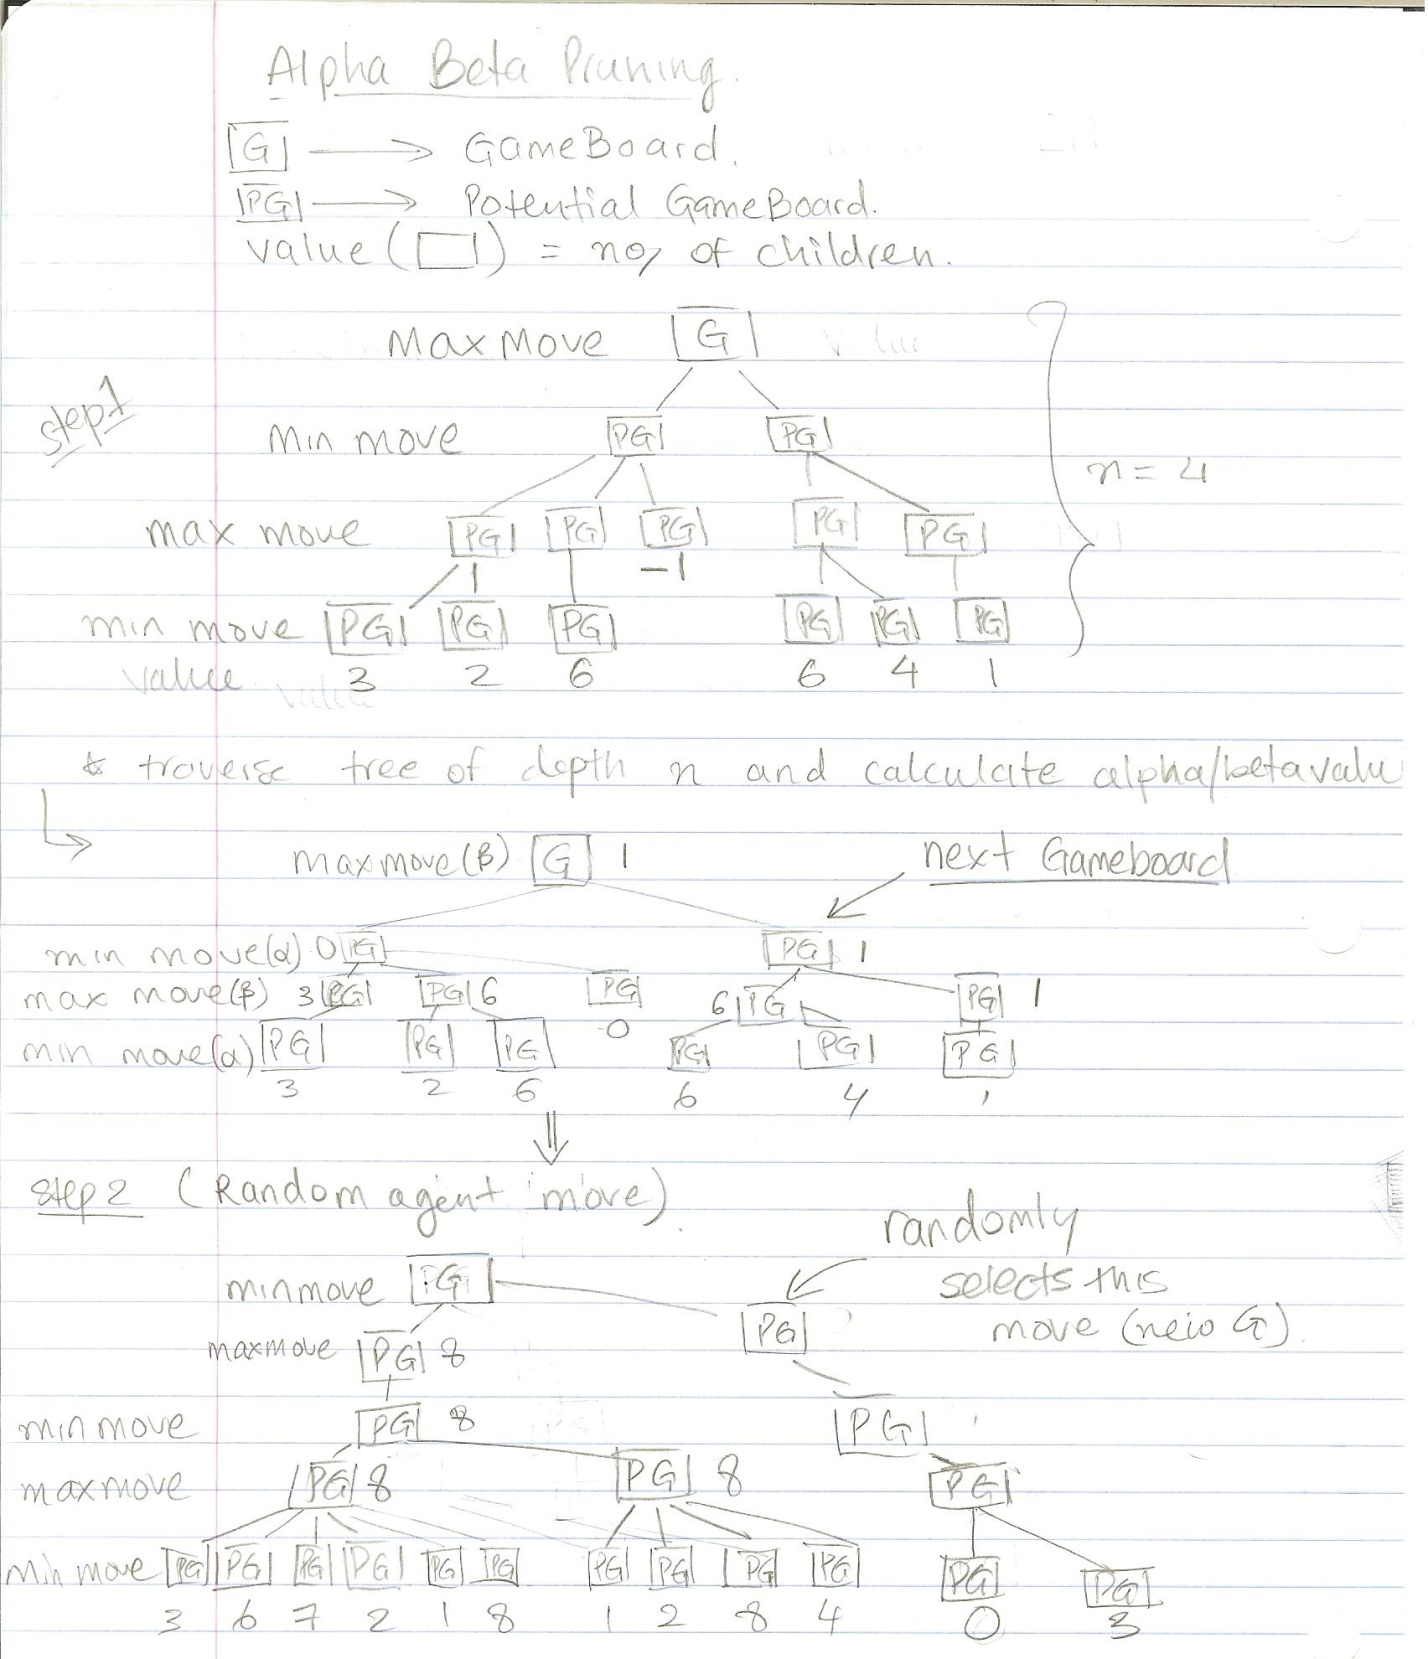 Alpha Beta Pruning.
G → GameBoard.
PG → Potential GameBoard.
value ( ) = no, of children.
Max Move G
step1
Min move PG PG
n = 4
max move PG PG PG PG PG
1 -1
min move PG PG PG PG PG PG
value 3 2 6 6 4 1
* traverse tree of depth n and calculate alpha/beta valu
maxmove(β) G 1 next Gameboard
min move(α) 0 PG PG 1
max move(β) 3 PG PG 6 PG 6 PG PG 1
0
min move(α) PG PG PG PG PG PG
3 2 6 6 4 1
⇓
step 2 (Random agent move)
randomly
selects this
move (new G).
minmove PG
PG
maxmove PG 8
min move PG 8 PG
maxmove PG 8 PG 8 PG
Min move PG PG PG PG PG PG PG PG PG PG PG PG
3 6 7 2 1 8 1 2 8 4 0 3